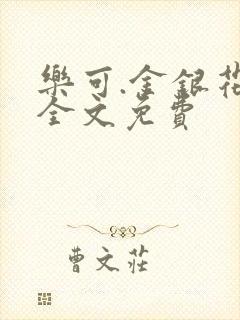 樂可.金銀花
全文免費
曹文莊